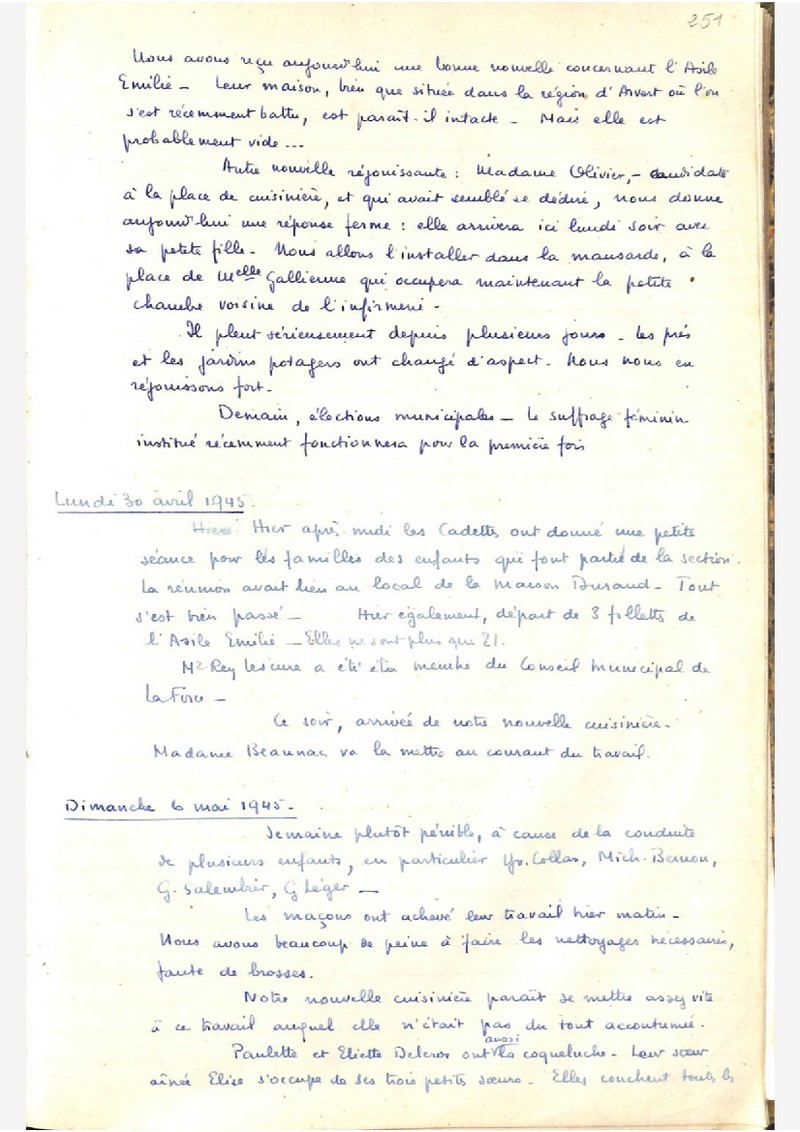 251
Nous avons reçu aujourd'hui une bonne nouvelle concernant l'Asile
Emilie - Leur maison, bien que située dans la région d'Arvert où l'on
s'est récemment battu, est paraît-il intacte - Mais elle est
probablement vide...
Autre nouvelle réjouissante : Madame Olivier, - candidate
à la place de cuisinière, et qui avait semblé se dédire, nous donne
aujourd'hui une réponse ferme : elle arrivera ici lundi soir avec
sa petite fille - Nous allons l'installer dans la mansarde, à la
place de Melle Gallienne qui occupera maintenant la petite
chambre voisine de l'infirmerie -
Il pleut sérieusement depuis plusieurs jours - les prés
et les jardins potagers ont changé d'aspect - Nous nous en
réjouissons fort -
Demain, élections municipales - Le suffrage féminin
institué récemment fonctionnera pour la première fois
Lundi 30 avril 1945.
Hier après-midi les Cadettes ont donné une petite
séance pour les familles des enfants qui font partie de la section.
La réunion avait lieu au local de la Maison Durand - Tout
s'est bien passé - Hier également, départ de 3 fillettes de
l'Asile Emilie - Elles ne sont plus que 21.
Mr Rey Lescure a été élu membre du Conseil Municipal de
La Force -
Ce soir, arrivée de notre nouvelle cuisinière.
Madame Beaunac va la mettre au courant du travail.
Dimanche 6 mai 1945.-
Semaine plutôt pénible, à cause de la conduite
de plusieurs enfants, en particulier Yv. Collas, Mich. Bernon,
G. Salembier, G Léger -
Les maçons ont achevé leur travail hier matin -
Nous avons beaucoup de peine à faire les nettoyages nécessaires,
faute de brosses.
Notre nouvelle cuisinière paraît se mettre assez vite
à ce travail auquel elle n'était pas du tout accoutumée.
Paulette et Eliette Delcros ont aussi la coqueluche - Leur sœur
aînée Elise s'occupe de ses trois petites sœurs - Elles couchent toutes les